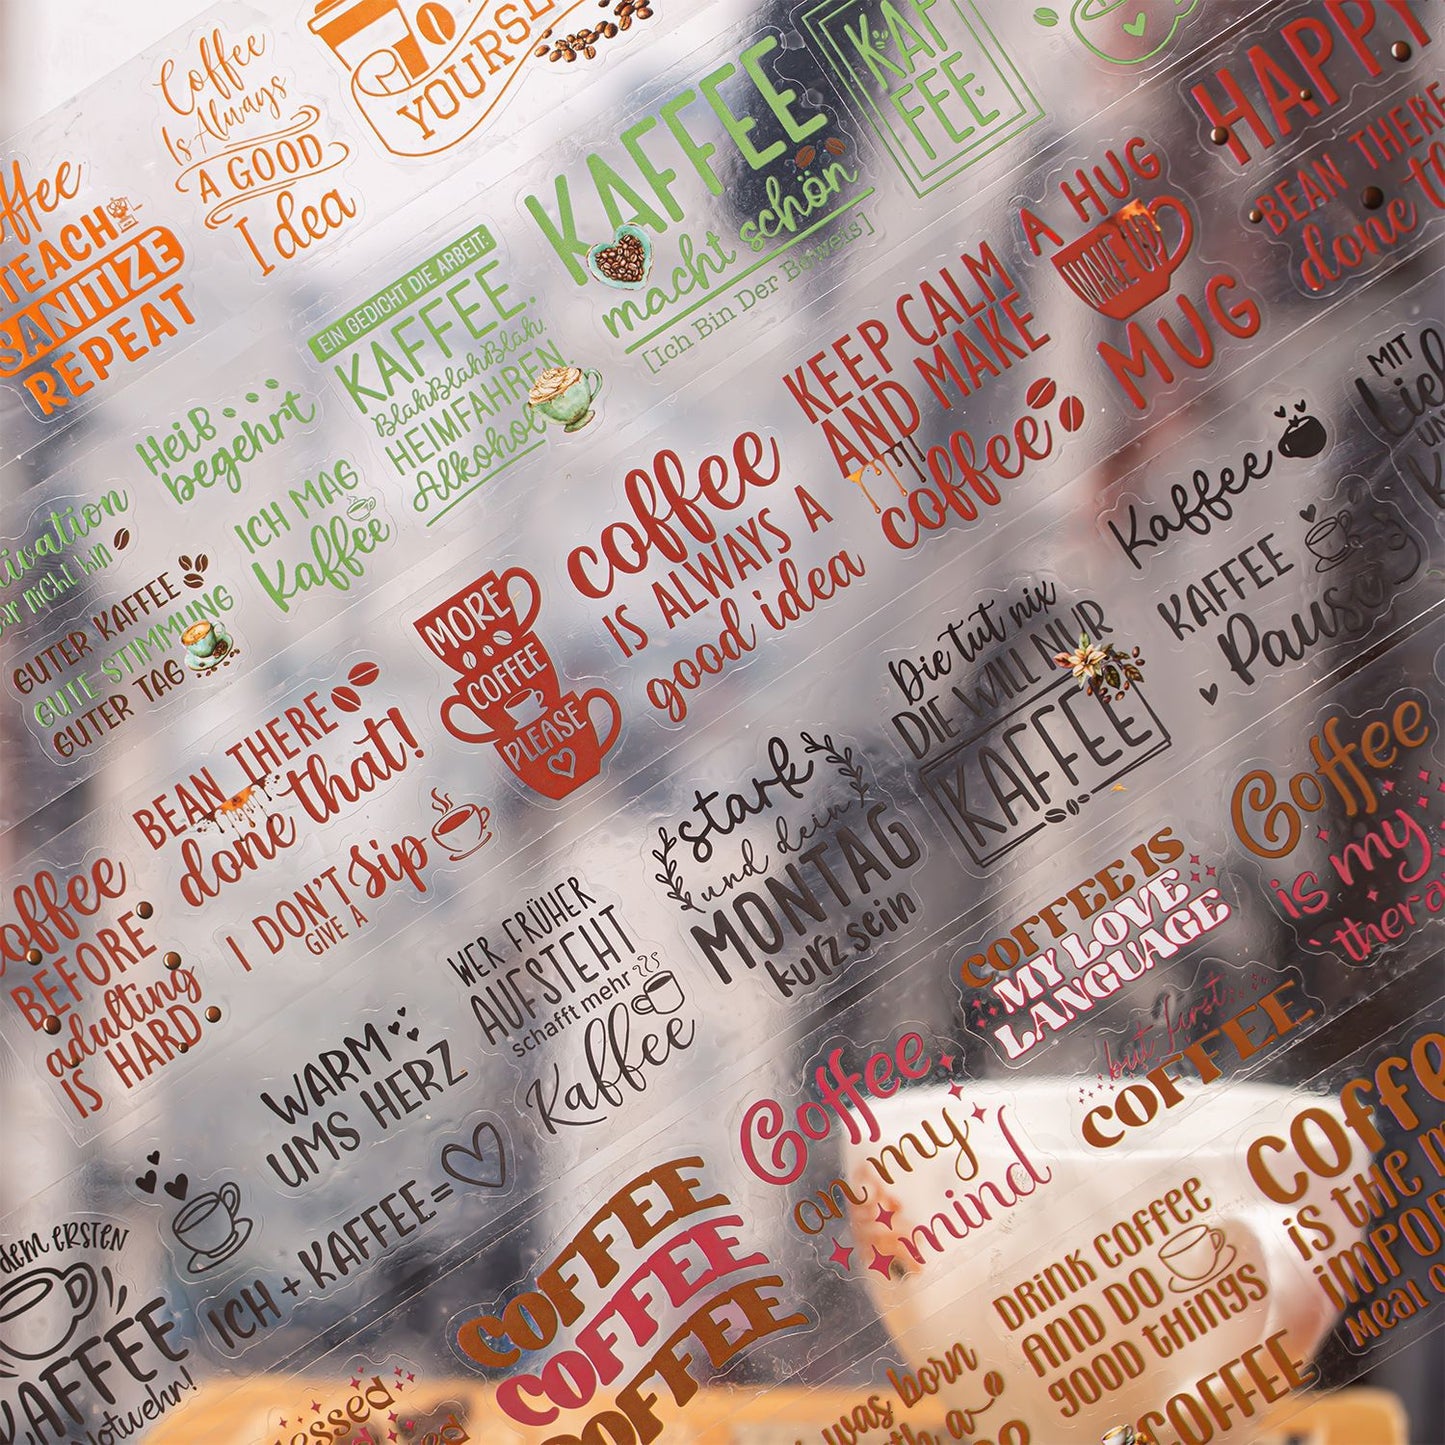 Coffee
Is Always
A GOOD
Idea
TEACH
SANITIZE
REPEAT
KAFFEE
macht schön
[Ich Bin Der Beweis]
KAF
FEE
HAPPY
BEAN THERE
done
EIN GEDICHT DIE ARBEIT:
KAFFEE.
BlahBlahBlah.
HEIMFAHREN.
Alkohol
Heiß
begehrt
ICH MAG
Kaffee
nicht win
GUTER KAFFEE
GUTE STIMMUNG
GUTER TAG
A HUG
WAKE UP
MUG
KEEP CALM
AND MAKE
coffee
coffee
IS ALWAYS A
good idea
MORE
COFFEE
PLEASE
BEAN THERE
done that!
I DON'T
GIVE A
sip
BEFORE
adulting
IS HARD
MIT
Kaffee
KAFFEE
Pause
Die tut nix
DIE WILL NUR
KAFFEE
stark
und dein
MONTAG
kurz sein
WER FRÜHER
AUFSTEHT
schafft mehr
Kaffee
WARM
UMS HERZ
ICH + KAFFEE =
dem ERSTEN
KAFFEE
Notwehr!
Coffee
is my
COFFEE IS
MY LOVE
LANGUAGE
but first...
COFFEE
Coffee
on my
mind
COFFEE
COFFEE
COFFEE
DRINK COFFEE
AND DO
good things
COFFEE
is the
meal
was born
COFFEE